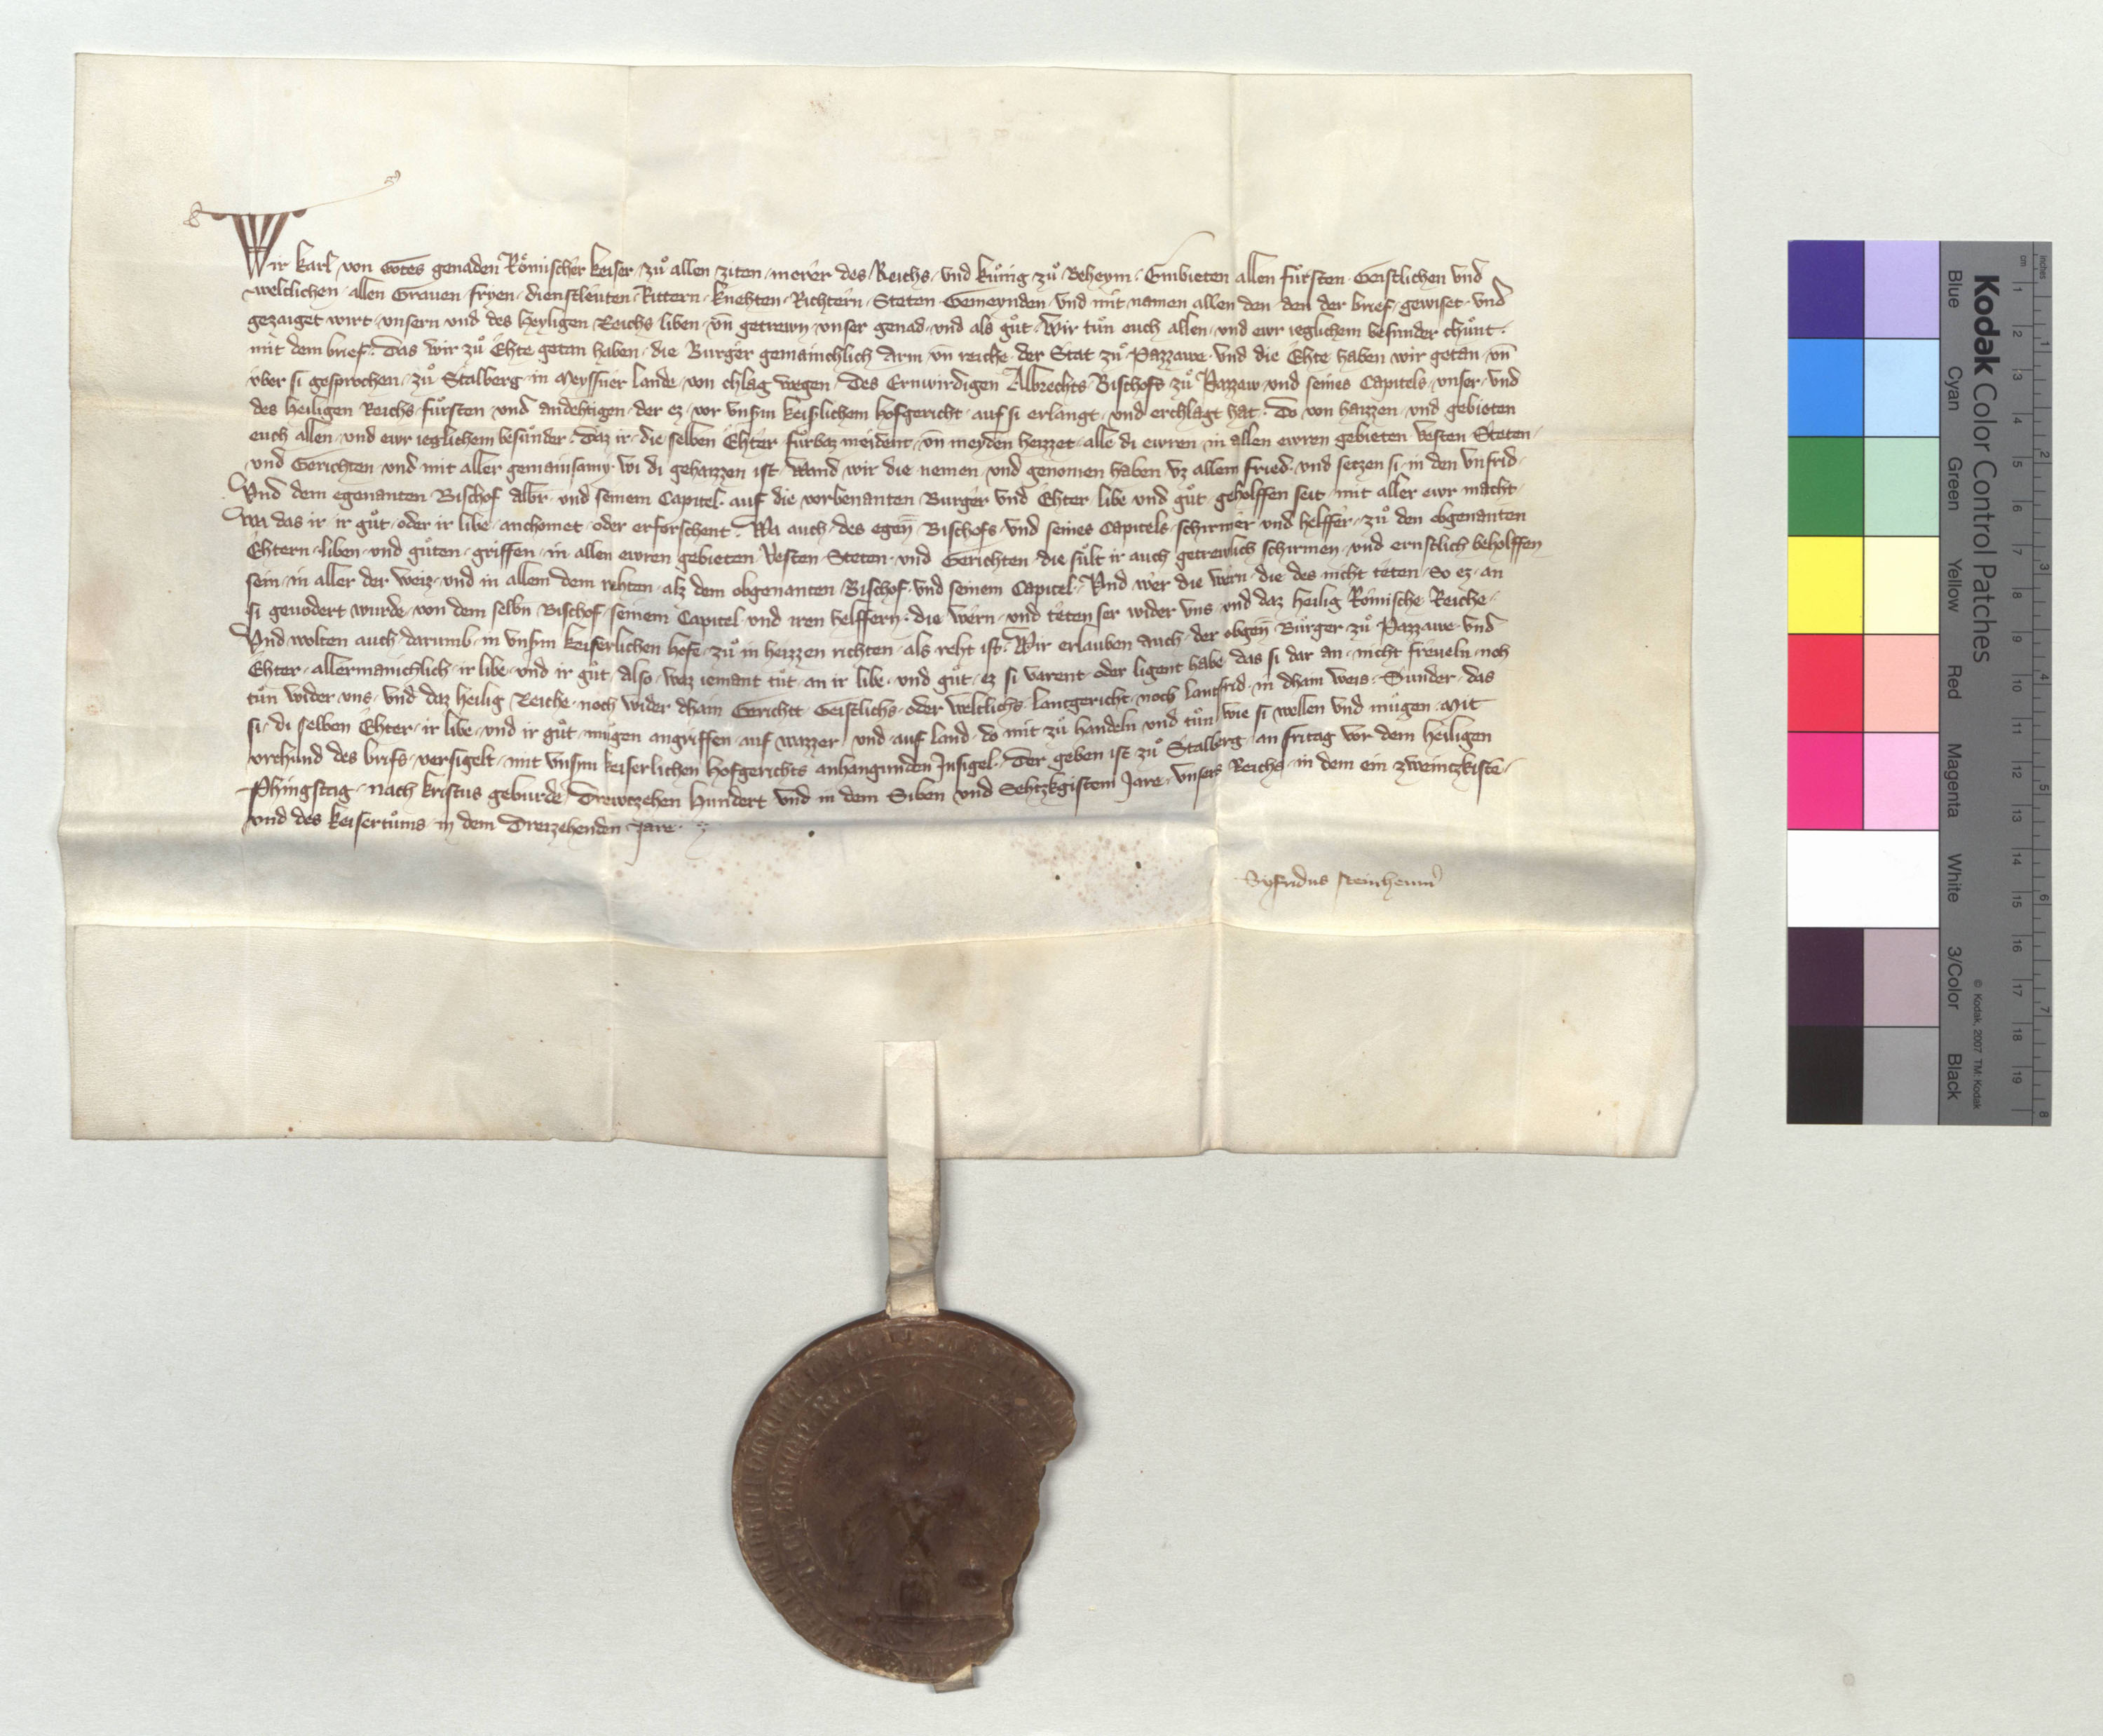 Wir karl von Gotes genaden Roͤmischer keiser zuͦ allen ziten merer des Reichs und kuͤnig zuͦ Beheym Embieten allen fuͤrsten Geistlichen und
weltlichen allen Grauen frien dienstleuten Rittern knehten Richtern Steten Gemeynden und mit namen allen den den der brief gewiset und
gezaiget wirt unsern und des heyligen Reichs liben vn̄ getrewn unser genad und als guͦt Wir tuͦn euch allen und ewr ieglichem besunder chuͦnt
mit dem brief Das wir zuͦ Ehte getan haben die Burger gemainchlich arm vn̄ reiche der Stat zuͦ Pazzawe und die Ehte haben wir getan vn̄
vber si gesprochen zuͦ Stalberg in Meyssner lande von chlag wegen des Ernwirdigen Albrechts Bischofs zuͦ Pazzaw und seines Capitels unser und
des heiligen Reichs fuͤrsten und andehtigen der ez vor unsm keislichem hofgericht auf si erlangt und erchlagt hat Do von haizzen und gebieten
euch allen und ewr ieglichem besunder Daz ir die selben Ehter fuͤrbaz meident vn̄ meyden heizzet alle di ewren in allen ewren gebieten Vesten Steten
und Gerichten und mit aller gemainsamy wi di gehaizzen ist Wand wir die nemen und genomen haben vz allem fried und setzen si in den vnfrid
Vnd dem egenanten Bischof Albr und seinem Capitel auf die vorbenanten Burger und Ehter libe und guͦt geholffen seit mit aller ewr macht
wa das ir ir guͦt oder ir libe anchomet oder erforschent Wa auch des egen̄ Bischofs und seines Capitels schirmer und helffer zuͦ den obgenanten
Ehtern liben und guͦten griffen in allen ewren gebieten Vesten Steten und Gerichten die suͤlt ir auch getrewlich schirmen und ernstlich beholffen
sein in aller der weiz und in allem dem rehten alz dem obgenanten Bischof und seinem Capitel Vnd wer die wern die des nicht teten So ez an
si geuodert wurde von dem selbn Bischof seinem Capitel und iren helffern die wern und teten ser wider vns und daz heilig Roͤmische Reiche
Vnd wolten auch darumb in vnsm keiserlichen hofe zuͦ in heizzen richten als reht ist Wir erlauben auch der obgen̄ Burger zuͦ Pazzawe und
Ehter allermainchlich ir libe und ir guͦt also waz iemant tuͦt an ir libe und guͦt ez si varent oder ligent habe das si dar an nicht freueln noch
tuͦn wider vns und daz heilig Reiche noch wider dhain Gericht Geistlichs oder weltlichs lantgericht noch lantfrid in dhain weis Sunder das
si di selben Ehter ir libe und ir guͦt muͤgen angriffen auf wazzer und auf land do mit zuͦ handeln und tuͦn wie si wellen und muͤgen Mit
vrchund des brifs versigelt mit vnsm keiserlichen hofgerichts anhangunden Insigel Der geben ist zuͦ Stalberg an fritag vor dem heiligen
Phingsttag nach kristus geburde Drewtzehen hundert und in dem Siben und Sehtzkgistem Jare vnsers Reichs in dem ein zweintzkiste
und des keisertuͦms in dem Dreizehenden Jare
Syfridus Steinheim̄
Kodak Color Control Patches
Blue Cyan Green Yellow Red Magenta White 3/Color Black
© Kodak, 2007 TM: Kodak
inches 1 2 3 4 5 6 7 8
cm 1 2 3 4 5 6 7 8 9 10 11 12 13 14 15 16 17 18 19